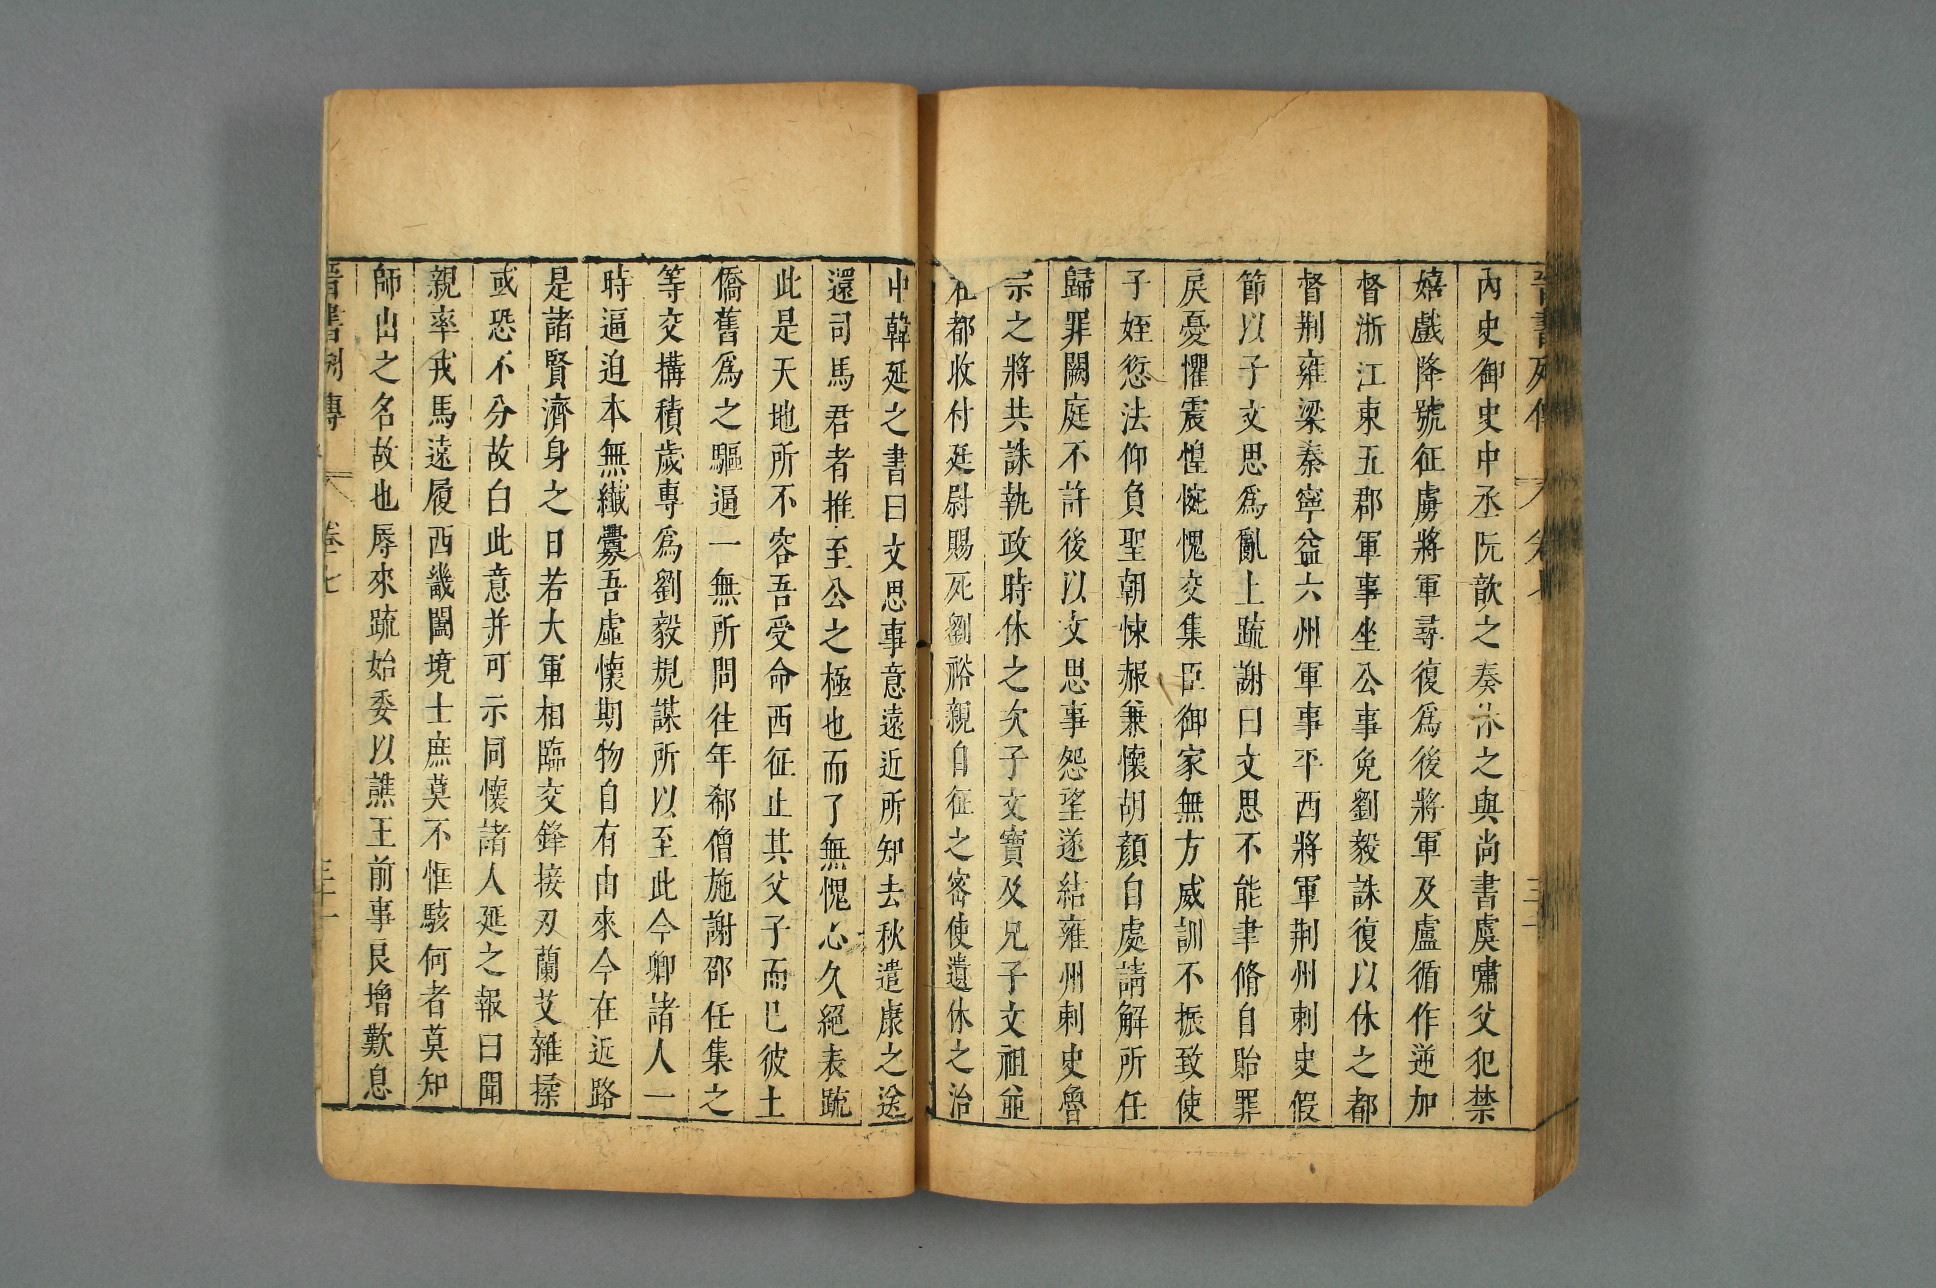 晉書列傳 卷七
內史御史中丞阮歆之奏休之與尚書虞嘯父犯禁
嬉戲降號征虜將軍尋復爲後將軍及盧循作逆加
督浙江東五郡軍事坐公事免劉毅誅復以休之都
督荆雍梁秦寧益六州軍事平西將軍荆州刺史假
節以子文思爲亂上疏謝曰文思不能聿脩自貽罪
戾憂懼震惶惋愧交集臣御家無方威訓不振致使
子姪愆法仰負聖朝悚赧兼懷胡顏自處請解所任
歸罪闕庭不許後以文思事怨望遂結雍州刺史魯
宗之將共誅執政時休之次子文寶及兄子文祖並
在都收付廷尉賜死劉裕親自征之密使遺休之治
中韓延之書曰文思事意遠近所知去秋遣康之送
還司馬君者推至公之極也而了無愧心久絕表疏
此是天地所不容吾受命西征止其父子而已彼土
僑舊爲之驅逼一無所問往年郗僧施謝邵任集之
等交構積歲專爲劉毅規謀所以至此今卿諸人一
時逼迫本無纖釁吾虛懷期物自有由來今在近路
是諸賢濟身之日若大軍相臨交鋒接刃蘭艾雜揉
或恐不分故白此意并可示同懷諸人延之報曰聞
親率戎馬遠履西畿闔境士庶莫不恇駭何者莫知
師出之名故也辱來疏始委以譙王前事良增歎息
晉書列傳 卷七 三十一